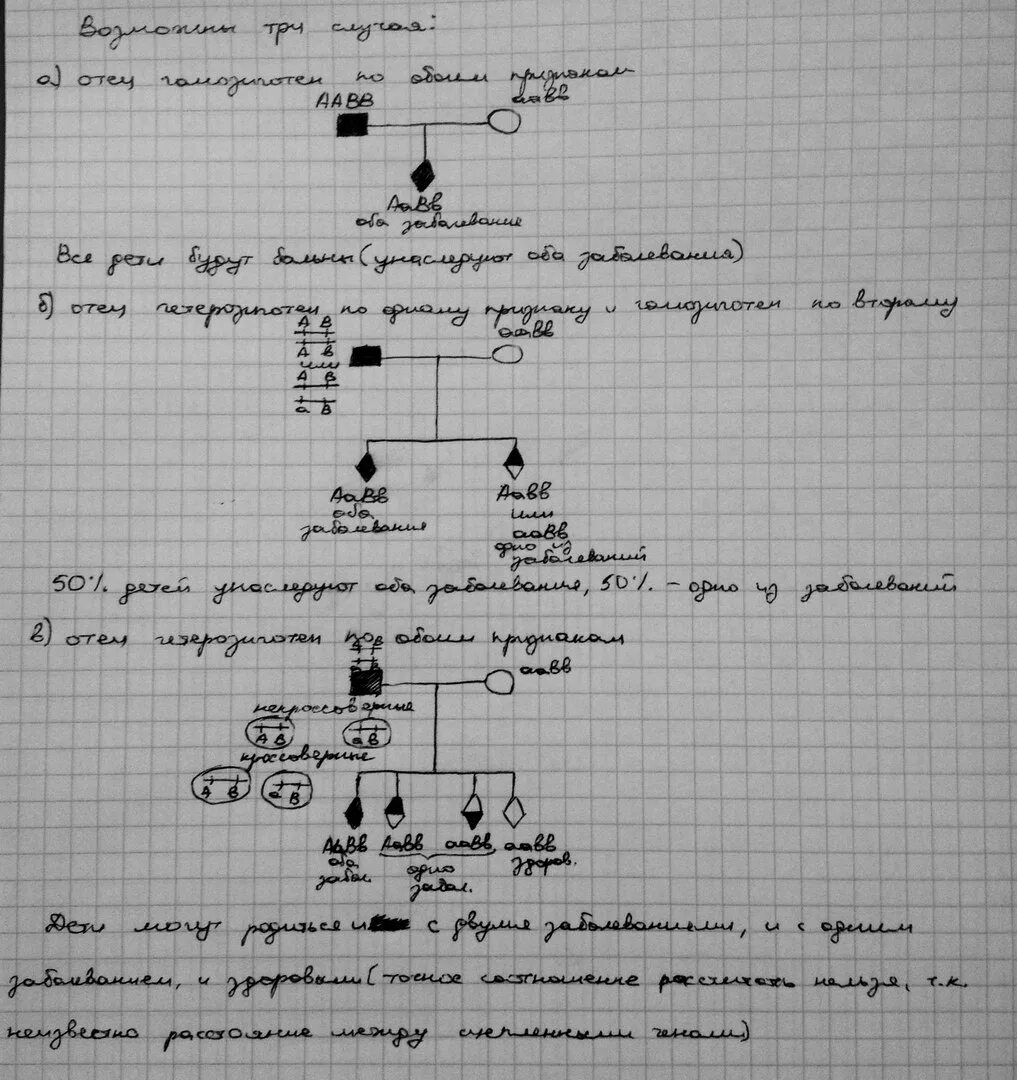 Возможны три случая:
а) отец гомозиготен по обоим признакам
ААВВ
ааbb
АаВb
оба заболевание
Все дети будут больны (унаследуют оба заболевания)
б) отец гетерозиготен по одному признаку и гомозиготен по второму
А В
А b
или
А В
а В
ааbb
АаВb
оба
заболевания
Ааbb
или
ааВb
одно из
заболеваний
50% детей унаследуют оба заболевание, 50% - одно из заболеваний
в) отец гетерозиготен по обоим признакам
ааbb
некроссоверные
А В
а b
кроссоверные
А b
а В
АаВb Ааbb ааВb ааbb
оба
забол.
одно
забол.
здоров.
Дети могут родиться и с двумя заболеваниями, и с одним
забоеванием, и здоровыми (точное соотношение рассчитать нельзя, т.к.
неизвестно расстояние между сцепленными генами)